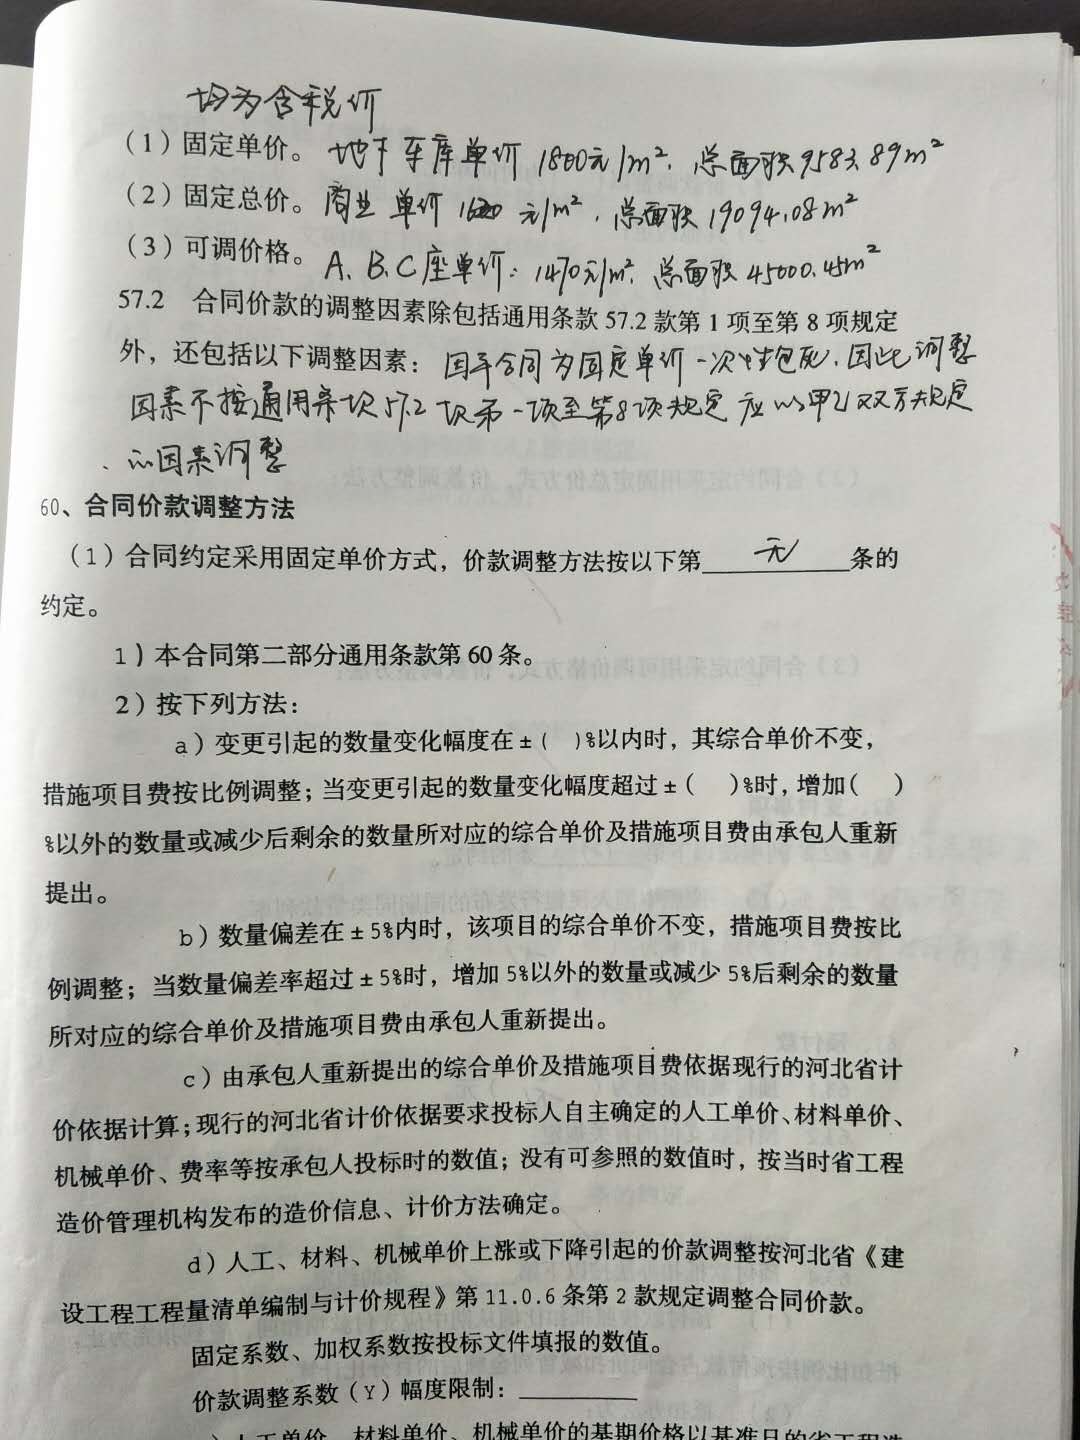 均为含税价
(1)固定单价。地下车库单价1800元/m²,总面积9583.89m²
(2)固定总价。商业单价 元/m²,总面积19094.08m²
(3)可调价格。A、B、C座单价:1470元/m²,总面积45000.45m²
57.2 合同价款的调整因素除包括通用条款57.2款第1项至第8项规定
外,还包括以下调整因素:因本合同为固定单价一次性包死,因此调整
因素不按通用条款57.2款第一项至第8项规定应以甲乙双方规定
的因素调整
60、合同价款调整方法
(1)合同约定采用固定单价方式,价款调整方法按以下第 无 条的
约定。
1)本合同第二部分通用条款第60条。
2)按下列方法:
a)变更引起的数量变化幅度在±( )%以内时,其综合单价不变,
措施项目费按比例调整;当变更引起的数量变化幅度超过±( )%时,增加( )
%以外的数量或减少后剩余的数量所对应的综合单价及措施项目费由承包人重新
提出。
b)数量偏差在±5%内时,该项目的综合单价不变,措施项目费按比
例调整;当数量偏差率超过±5%时,增加5%以外的数量或减少5%后剩余的数量
所对应的综合单价及措施项目费由承包人重新提出。
c)由承包人重新提出的综合单价及措施项目费依据现行的河北省计
价依据计算;现行的河北省计价依据要求投标人自主确定的人工单价、材料单价、
机械单价、费率等按承包人投标时的数值;没有可参照的数值时,按当时省工程
造价管理机构发布的造价信息、计价方法确定。
d)人工、材料、机械单价上涨或下降引起的价款调整按河北省《建
设工程工程量清单编制与计价规程》第11.0.6条第2款规定调整合同价款。
固定系数、加权系数按投标文件填报的数值。
价款调整系数(Y)幅度限制:
)人工单价、材料单价、机械单价的基期价格以基准日的省工程造